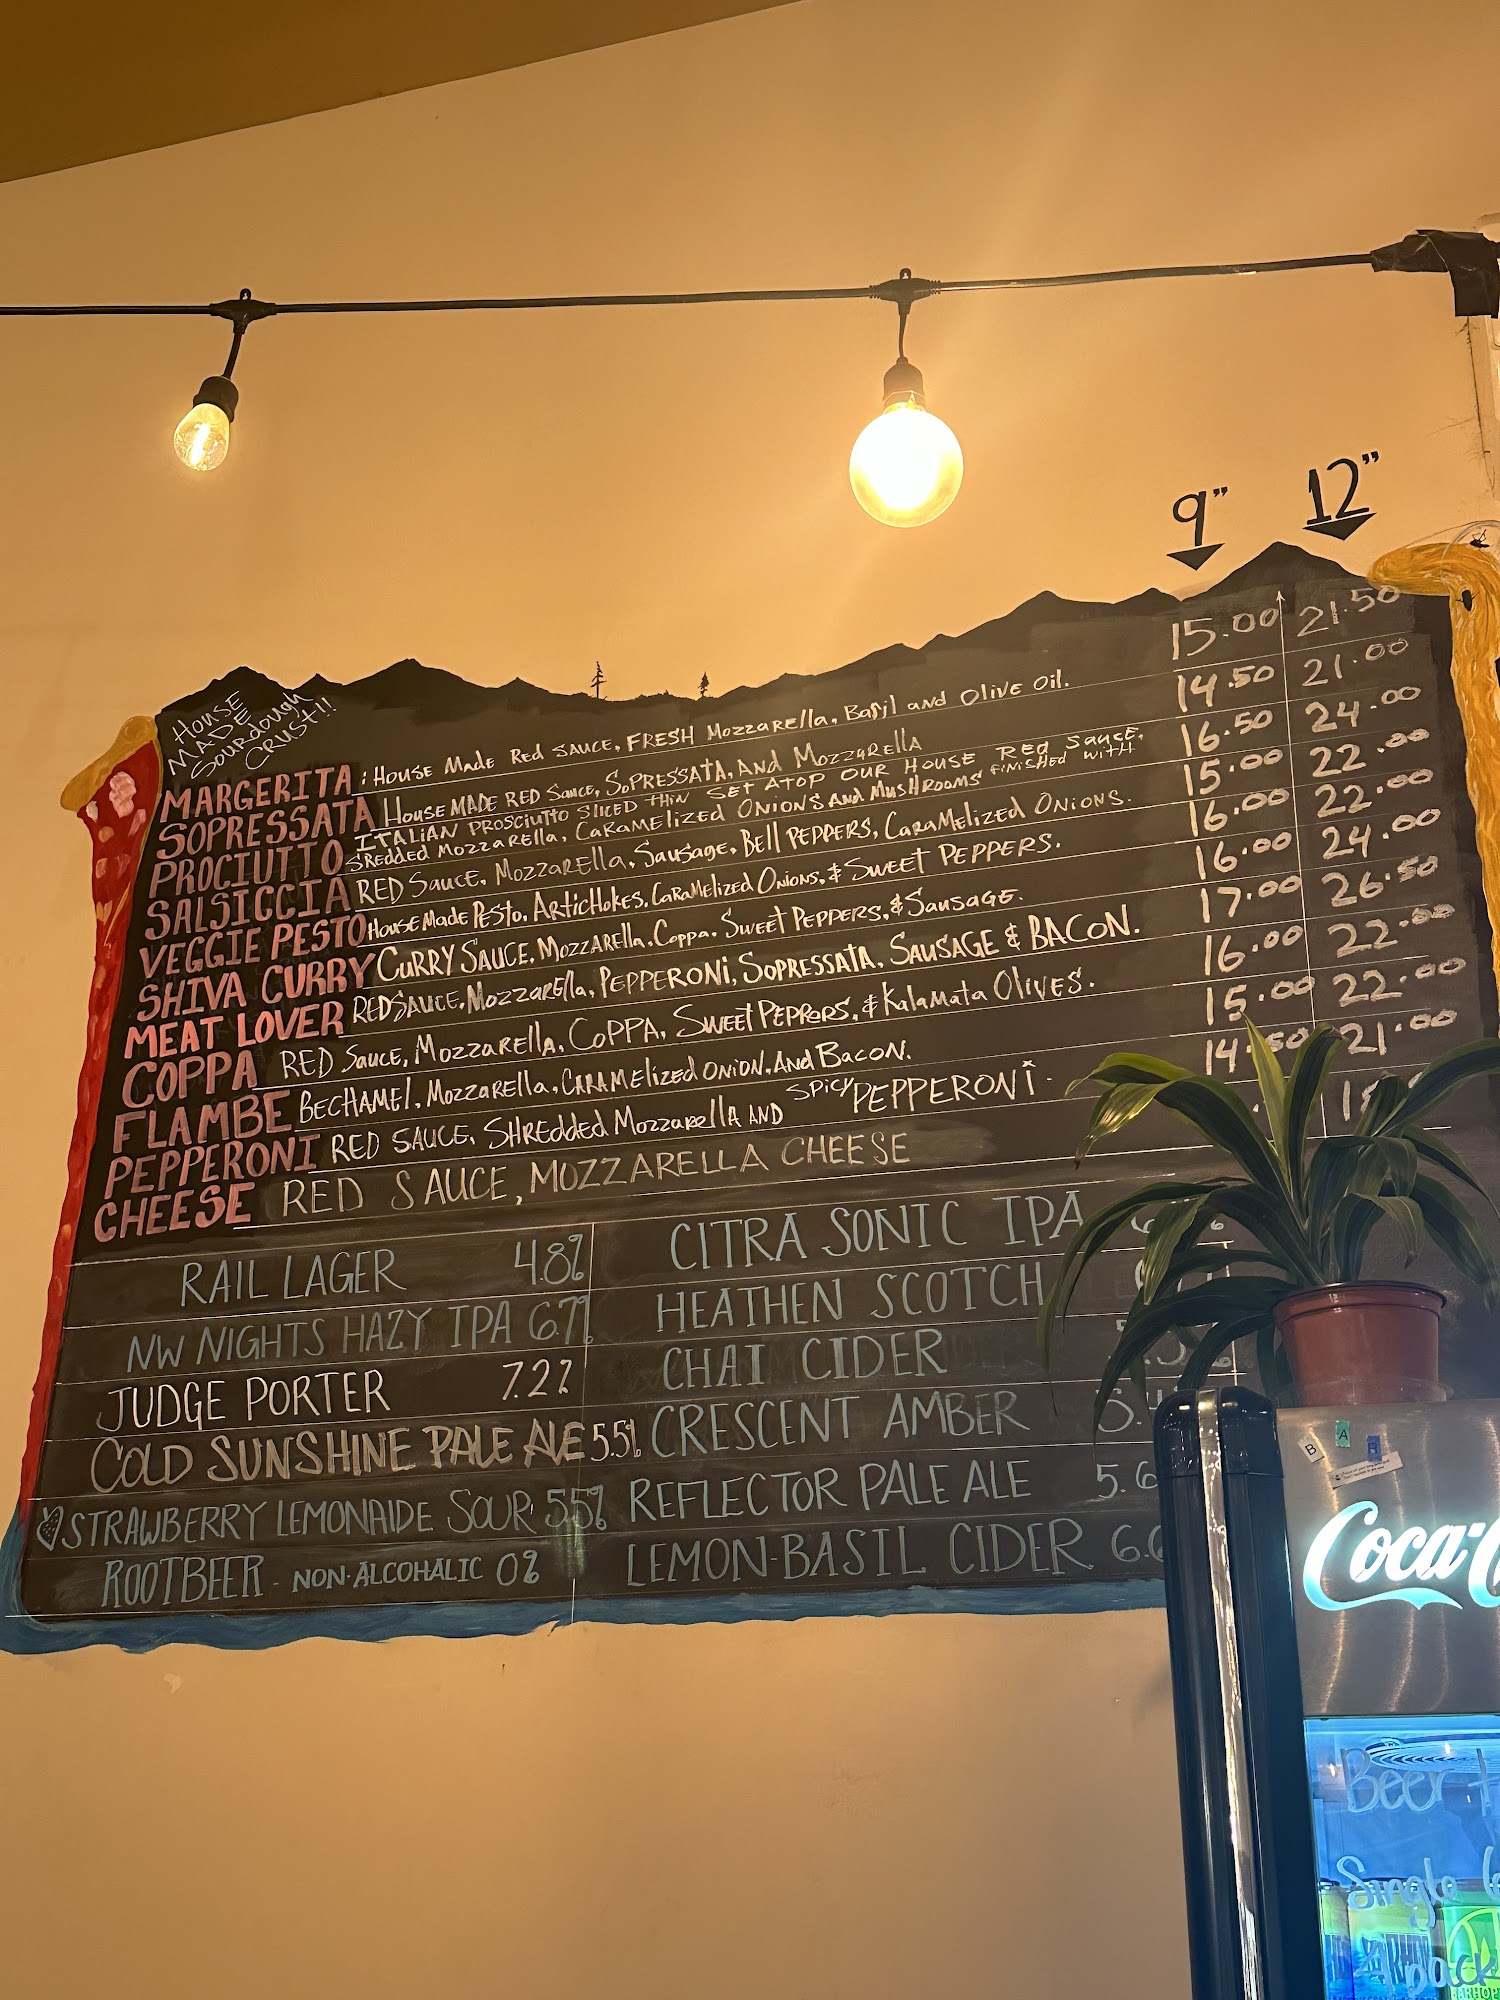 9" 12"
HOUSE
MADE
SOURDOUGH
CRUST!!!
MARGERITA: HOUSE MADE RED SAUCE, FRESH MOZZARELLA, BASIL AND OLIVE OIL. 15.00 21.50
SOPRESSATA HOUSE MADE RED SAUCE, SOPRESSATA, AND MOZZARELLA 14.50 21.00
PROCIUTTO ITALIAN PROSCIUTTO SLICED THIN SET ATOP OUR HOUSE RED SAUCE,
SREDDED MOZZARELLA, CARAMELIZED ONIONS AND MUSHROOMS FINISHED WITH 16.50 24.00
SALSICCIA RED SAUCE, MOZZARELLA, SAUSAGE, BELL PEPPERS, CARAMELIZED ONIONS. 15.00 22.00
VEGGIE PESTO HOUSE MADE PESTO, ARTICHOKES, CARAMELIZED ONIONS, & SWEET PEPPERS. 16.00 22.00
SHIVA CURRY CURRY SAUCE, MOZZARELLA, COPPA, SWEET PEPPERS, & SAUSAGE. 16.00 24.00
MEAT LOVER RED SAUCE, MOZZARELLA, PEPPERONI, SOPRESSATA, SAUSAGE & BACON. 17.00 26.50
COPPA RED SAUCE, MOZZARELLA, COPPA, SWEET PEPPERS, & KALAMATA OLIVES. 16.00 22.00
FLAMBE BECHAMEL, MOZZARELLA, CARAMELIZED ONION, AND BACON. 15.00 22.00
PEPPERONI RED SAUCE, SHREDDED MOZZARELLA AND SPICY PEPPERONI. 14.50 21.00
CHEESE RED SAUCE, MOZZARELLA CHEESE
RAIL LAGER 4.8% CITRA SONIC IPA
NW NIGHTS HAZY IPA 6.7% HEATHEN SCOTCH
JUDGE PORTER 7.2% CHAI CIDER
COLD SUNSHINE PALE ALE 5.5% CRESCENT AMBER
STRAWBERRY LEMONAIDE SOUR 5.5% REFLECTOR PALE ALE 5.6
ROOTBEER - NON-ALCOHALIC 0% LEMON-BASIL CIDER
B A
Coca-C
Beer
Single